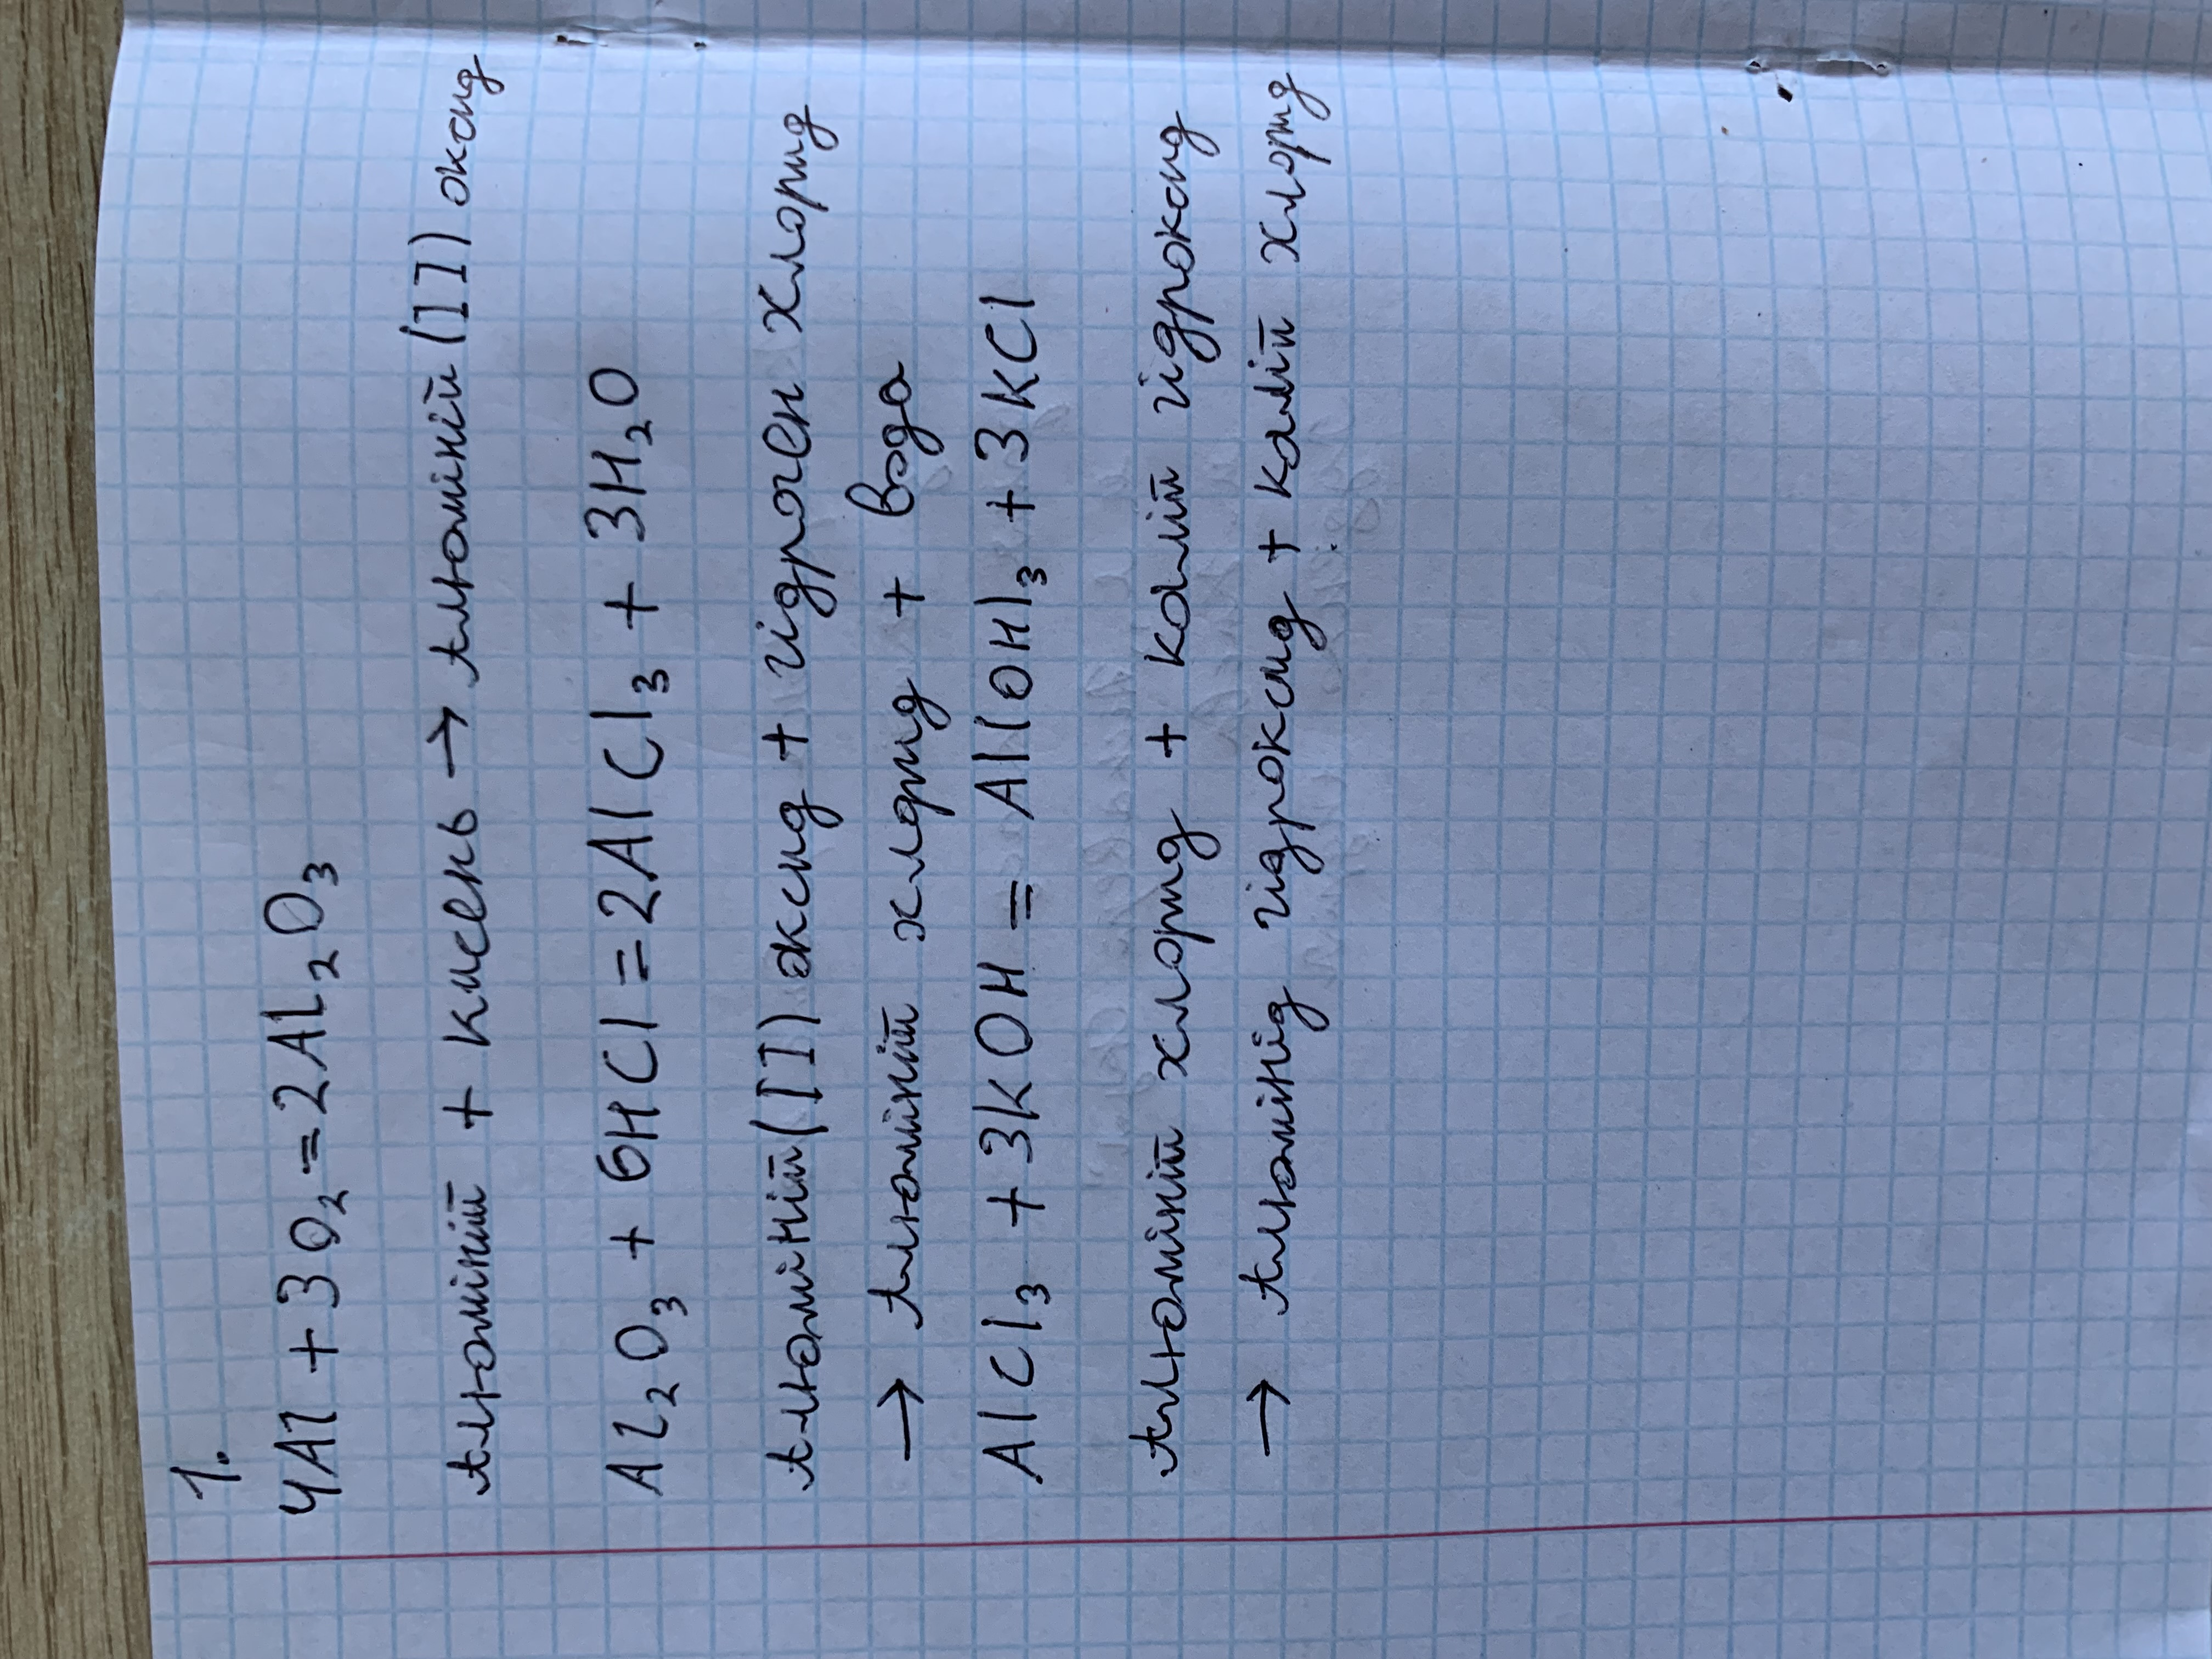 1.
4Al + 3O₂ = 2Al₂O₃
Алюміній + кисень → алюміній (II) оксид
Al₂O₃ + 6HCl = 2AlCl₃ + 3H₂O
Алюміній (II) оксид + гідроген хлорид
→ Алюміній хлорид + вода
AlCl₃ + 3KOH = Al(OH)₃ + 3KCl
Алюміній хлорид + калій гідроксид
→ Алюмінід гідроксид + калій хлорид